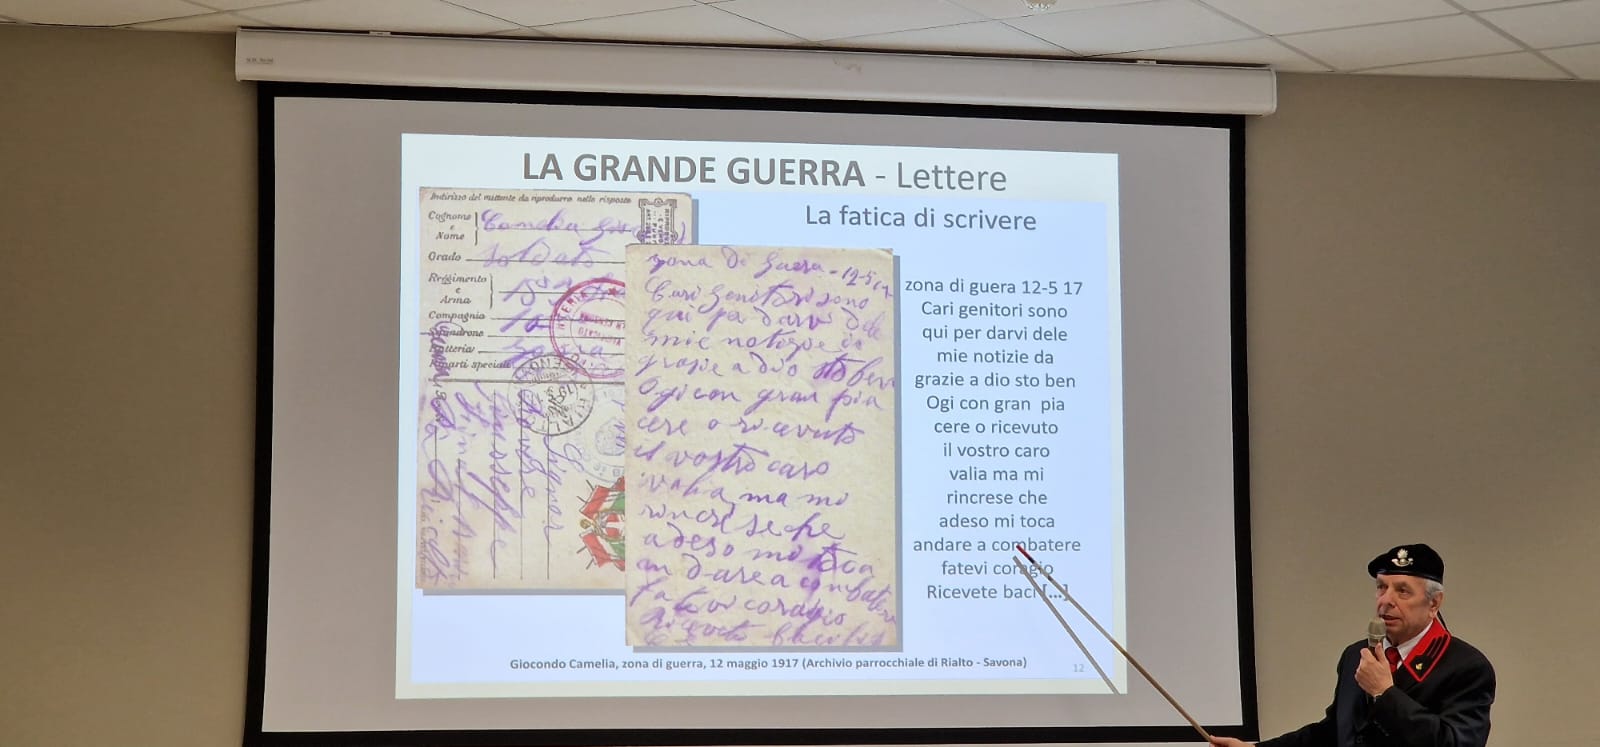 LA GRANDE GUERRA - Lettere
La fatica di scrivere
Indirizzo del mittente da riprodurre nelle risposte
Cognome
e
Nome
Camelia
Grado
soldato
Reggimento
e
Arma
Compagnia
Squadrone
Batteria
Riparti speciali
Giuseppe
zona di guera - 12-5 17
Cari genitori sono
qui per darvi dele
mie notizie da
grazie a dio sto ben
Ogi con gran pia
cere o ricevuto
il vostro caro
valia ma mi
rincrese che
adeso mi toca
andare a combatere
fatevi coragio
Ricevete baci
zona di guera 12-5 17
Cari genitori sono
qui per darvi dele
mie notizie da
grazie a dio sto ben
Ogi con gran pia
cere o ricevuto
il vostro caro
valia ma mi
rincrese che
adeso mi toca
andare a combatere
fatevi coragio
Ricevete baci [...]
Giocondo Camelia, zona di guerra, 12 maggio 1917 (Archivio parrocchiale di Rialto - Savona)
12